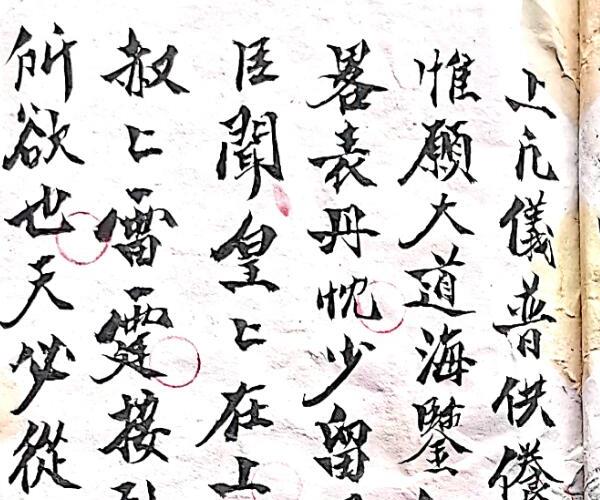 上元儀普供
惟願大道海鑒
畧表丹忱少留
臣聞皇〻在上
赦〻雷霆接
所欲也天必從